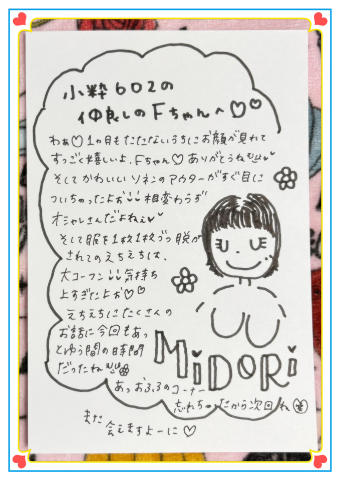 小粋602の
仲良しのFちゃんへ♡♡
わぁ♡1ヵ月もたたないうちにお顔が見れて
すっごく嬉しいよ、Fちゃん♡ありがとうね
そしてかわいいソネのアウターがすぐ目に
ついちゃったよぉ 相変わらず
オシャレさんだよねぇ
そして服を1枚1枚づつ脱が
されてのえちえちは、
大コーフン 気持ち
よすぎたよぉ♡♡
えちえちにたくさんの
お話に今回もあっ
とゆう間の日時間
だったね
MiDORi
あっ お3.3のコーナー
忘れちゃったから次回ね
また
会えますよーに♡